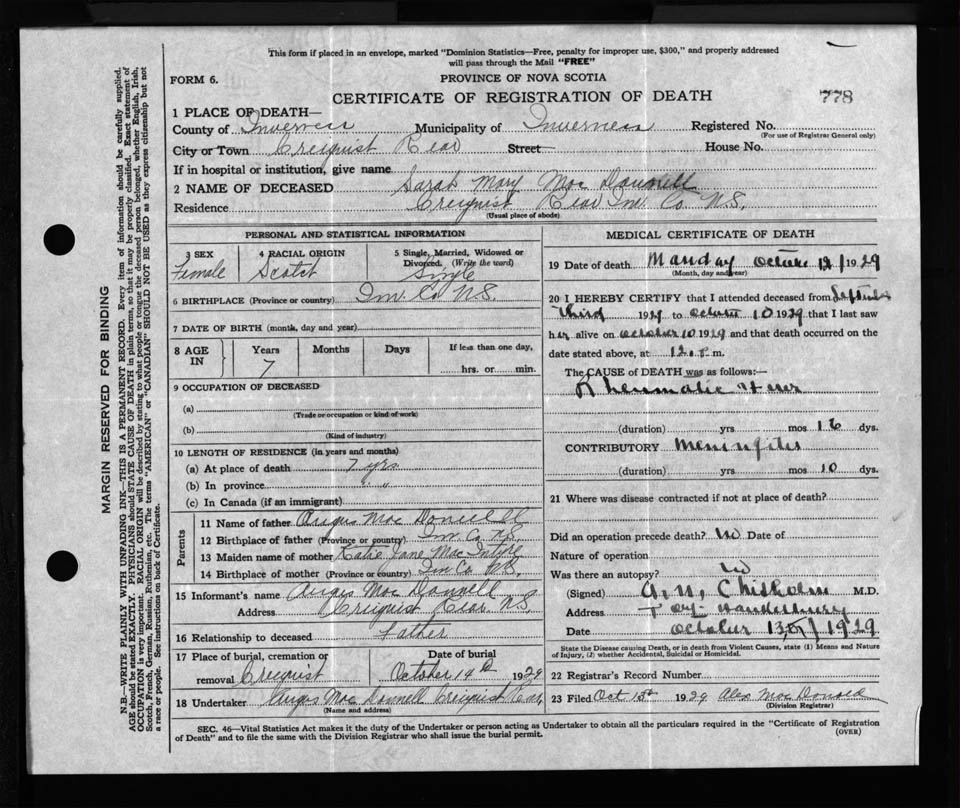 This form if placed in an envelope, marked "Dominion Statistics—Free, penalty for improper use, $300," and properly addressed
will pass through the Mail "FREE"
FORM 6.
PROVINCE OF NOVA SCOTIA
CERTIFICATE OF REGISTRATION OF DEATH
778
1 PLACE OF DEATH—
County of Inverness Municipality of Inverness Registered No.
(For use of Registrar General only)
City or Town Creignist Rear Street House No.
If in hospital or institution, give name
2 NAME OF DECEASED Sarah Mary Mac Donnell
Residence Creignist Rear Inv. Co N.S.
(Usual place of abode)
PERSONAL AND STATISTICAL INFORMATION
3 SEX Female
4 RACIAL ORIGIN Scotch
5 Single, Married, Widowed or Divorced. (Write the word) Single
6 BIRTHPLACE (Province or country) Inv. Co N.S.
7 DATE OF BIRTH (month, day and year)
8 AGE IN Years 7 Months Days If less than one day, hrs. or min.
9 OCCUPATION OF DECEASED
(a)
(Trade or occupation or kind of work)
(b)
(Kind of industry)
10 LENGTH OF RESIDENCE (in years and months)
(a) At place of death 7 yrs
(b) In province " "
(c) In Canada (if an immigrant)
Parents
11 Name of father Angus Mac Donnell
12 Birthplace of father (Province or country) Inv. Co N.S.
13 Maiden name of mother Katie Jane Mac Intyre
14 Birthplace of mother (Province or country) Inv Co N.S.
15 Informant's name Angus Mac Donnell
Address Creignist Rear N.S.
16 Relationship to deceased Father
17 Place of burial, cremation or removal Creignist
Date of burial October 14th 1929
18 Undertaker Angus Mac Donnell Creignist Rear
(Name and address)
MEDICAL CERTIFICATE OF DEATH
19 Date of death Monday October 12/1929
(Month, day and year)
20 I HEREBY CERTIFY that I attended deceased from September
third 1929 to October 10 1929 that I last saw
her alive on October 10 1929 and that death occurred on the
date stated above, at 12 P.m.
The CAUSE of DEATH was as follows:—
Rheumatic Fever
(duration) yrs mos 16 dys.
CONTRIBUTORY Meningitis
(duration) yrs mos 10 dys.
21 Where was disease contracted if not at place of death?
Did an operation precede death? No Date of
Nature of operation
Was there an autopsy? No
(Signed) Chisholm M.D.
Address
Date October 13, 1929
State the Disease causing Death, or in Death from Violent Causes, state (1) Means and Nature of Injury, (2) whether Accidental, Suicidal or Homicidal.
22 Registrar's Record Number
23 Filed Oct 15th 1929 Alex Mac Donald
(Division Registrar)
SEC. 46—Vital Statistics Act makes it the duty of the Undertaker or person acting as Undertaker to obtain all the particulars required in the "Certificate of Registration
of Death" and to file the same with the Division Registrar who shall issue the burial permit.
(OVER)
MARGIN RESERVED FOR BINDING
N.B.—WRITE PLAINLY WITH UNFADING INK—THIS IS A PERMANENT RECORD. Every item of information should be carefully supplied.
AGE should be stated EXACTLY. PHYSICIANS should STATE CAUSE OF DEATH in plain terms, so that it may be properly classified. Exact statement of
OCCUPATION is very important. RACIAL ORIGIN will be described by stating to what people or tongue the deceased person belonged, whether English, Irish,
Scotch, French, German, Russian, Ruthenian, etc. The terms "AMERICAN" or "CANADIAN" SHOULD NOT BE USED as they express citizenship but not
a race or people. See instructions on back of Certificate.